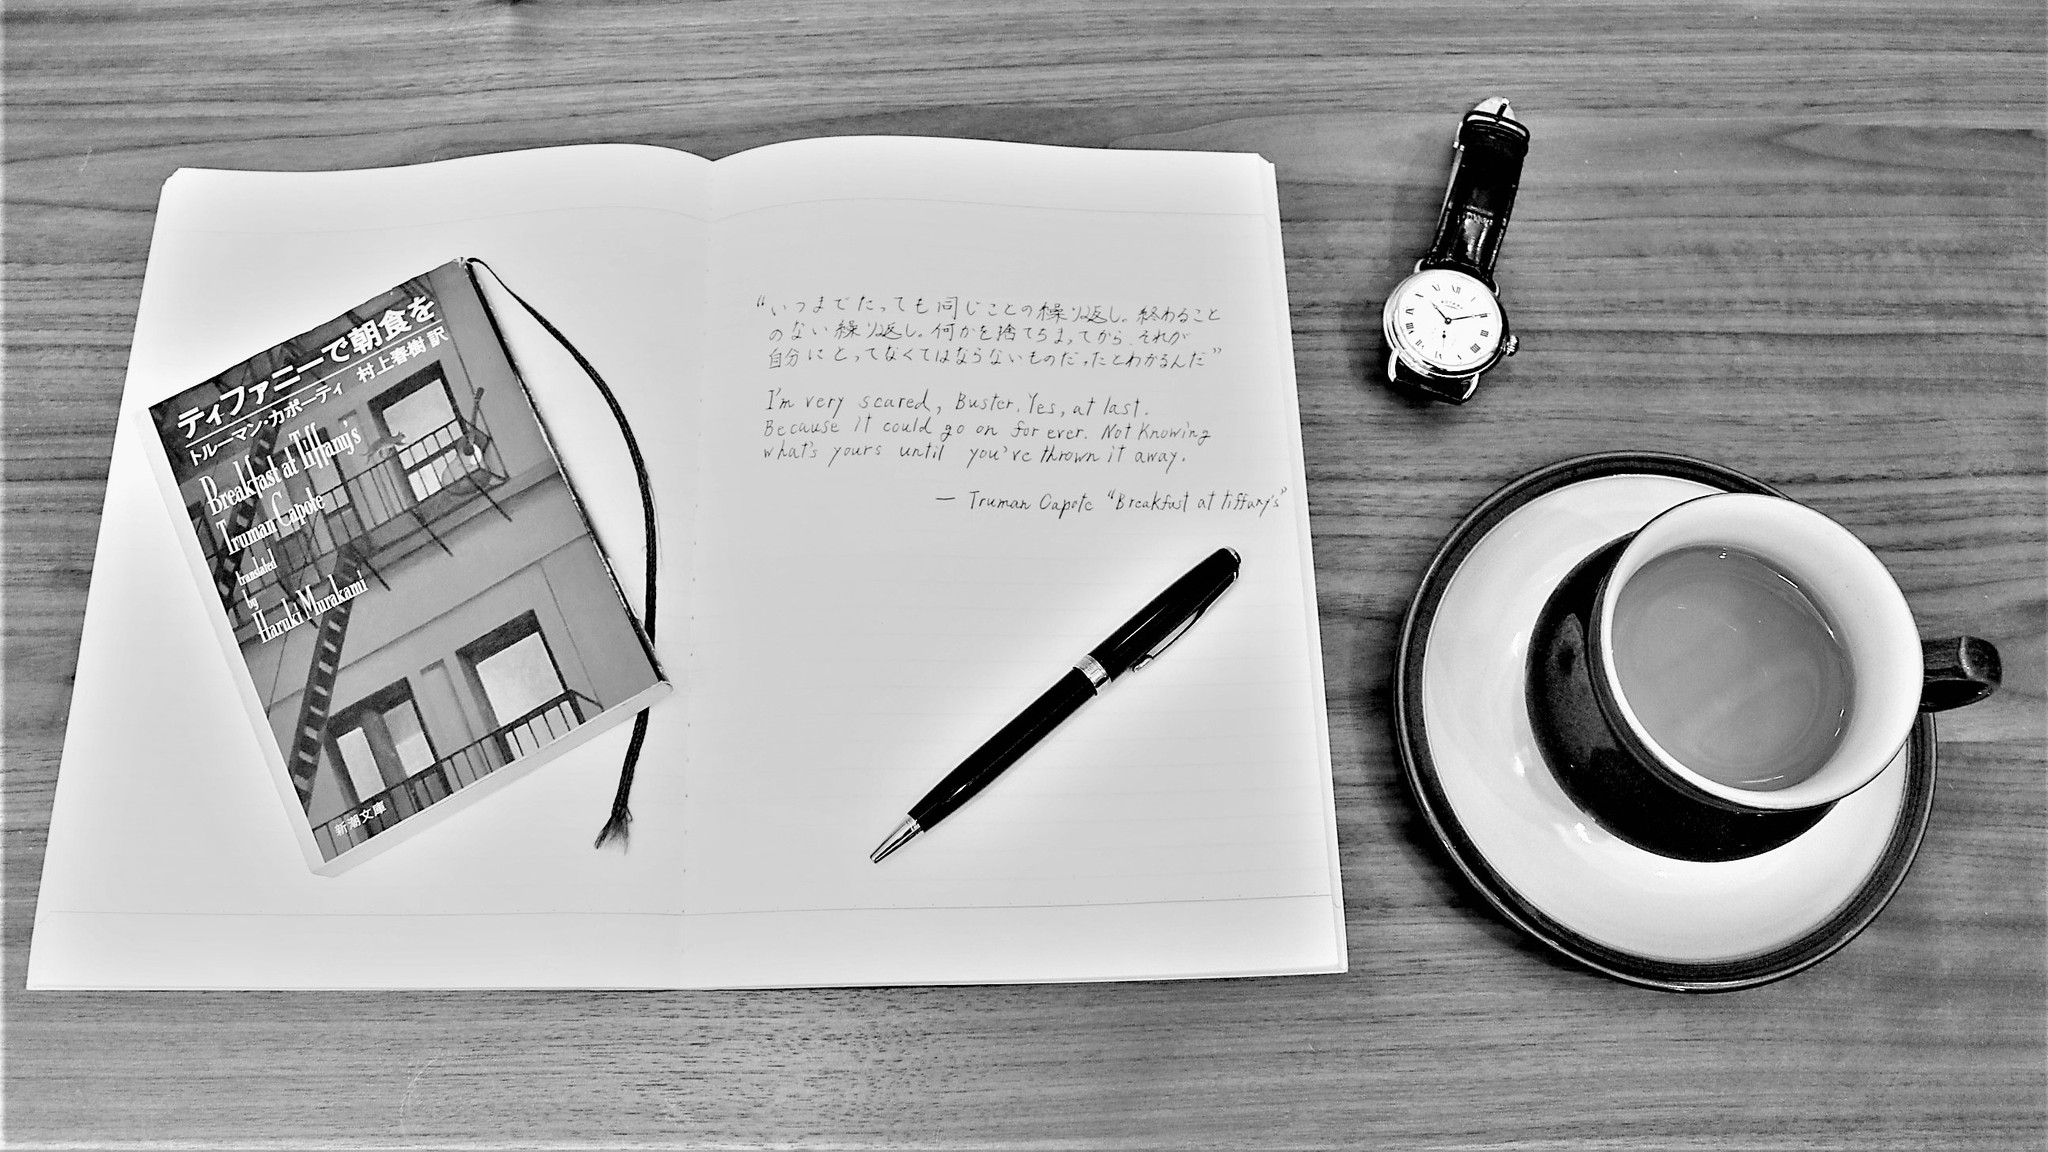 ティファニーで朝食を
トルーマン・カポーティ 村上春樹 訳
Breakfast at Tiffany's
Truman Capote
translated
by
Haruki Murakami
新潮文庫
“いつまでたっても同じことの繰り返し。終わること
のない繰り返し。何かを捨てちまってから、それが
自分にとってなくてはならないものだったとわかるんだ”
I'm very scared, Buster. Yes, at last.
Because it could go on forever. Not knowing
what's yours until you've thrown it away.
— Truman Capote “Breakfast at Tiffany's”